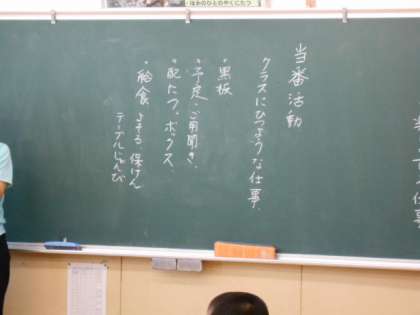 当番活動
クラスにひつような仕事。
・黒板
・予定・ご用聞き、
・配たつ。ボックス、
・給食 よそる、保けん
テーブルじゅんび
仕事